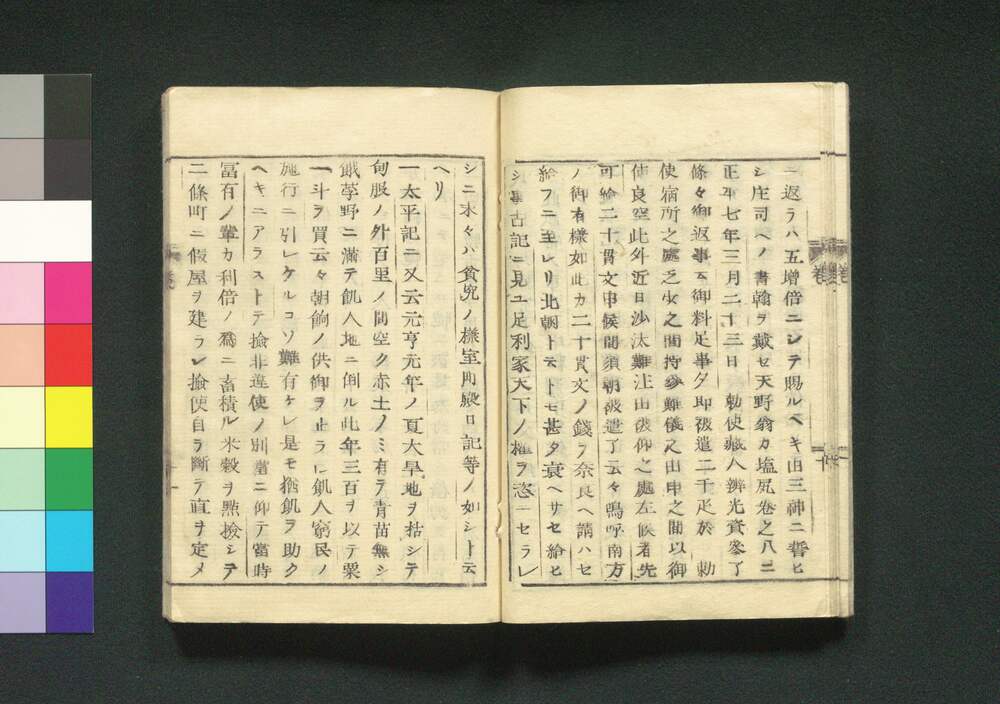 ニ返ラハ五増倍ニシテ賜ルベキ由三神ニ誓ヒ
シ庄司ヘノ書翰ヲ載セ天野翁カ塩尻卷之八ニ
正平七年三月二十三日 勅使藏人辨光資參了
條々御返事 御料足事夕即被遣二千疋於 勅
使宿所之處乏少之間持參難儀之由申之間以御
使良空此外近日沙汰難注出被仰之處左候者先
可給二十貫文申候間須朝被遣了云々嗚呼南方
ノ御有樣如此カ二十貫文ノ錢ヲ奈良ヘ請ハセ
給フニ至レリ北朝トテトモ甚タ衰ヘサセ給ヒ
シ事古記ニ見ユ足利家天下ノ權ヲ恣ニセラレ
シニ末々ハ貧究ノ樣室町殿日記等ノ如シト云
ヘリ
一太平記ニ又云元亨元年ノ夏大旱地ヲ枯シテ
旬服ノ外百里ノ間空ク赤土ノミ有テ青苗無シ
餓莩野ニ滿テ飢人地ニ倒ル此年三百ヲ以テ粟
一斗ヲ買云々朝餉ノ供御ヲ止ラレ飢人窮民ノ
施行ニ引レケルコソ難有ケレ是モ猶飢ヲ助ク
ヘキニアラストテ撿非違使ノ別當ニ仰テ當時
冨有ノ輩カ利倍ノ爲ニ畜積ル米穀ヲ點撿シテ
二條町ニ假屋ヲ建ラレ撿使自ラ斷テ直ヲ定メ